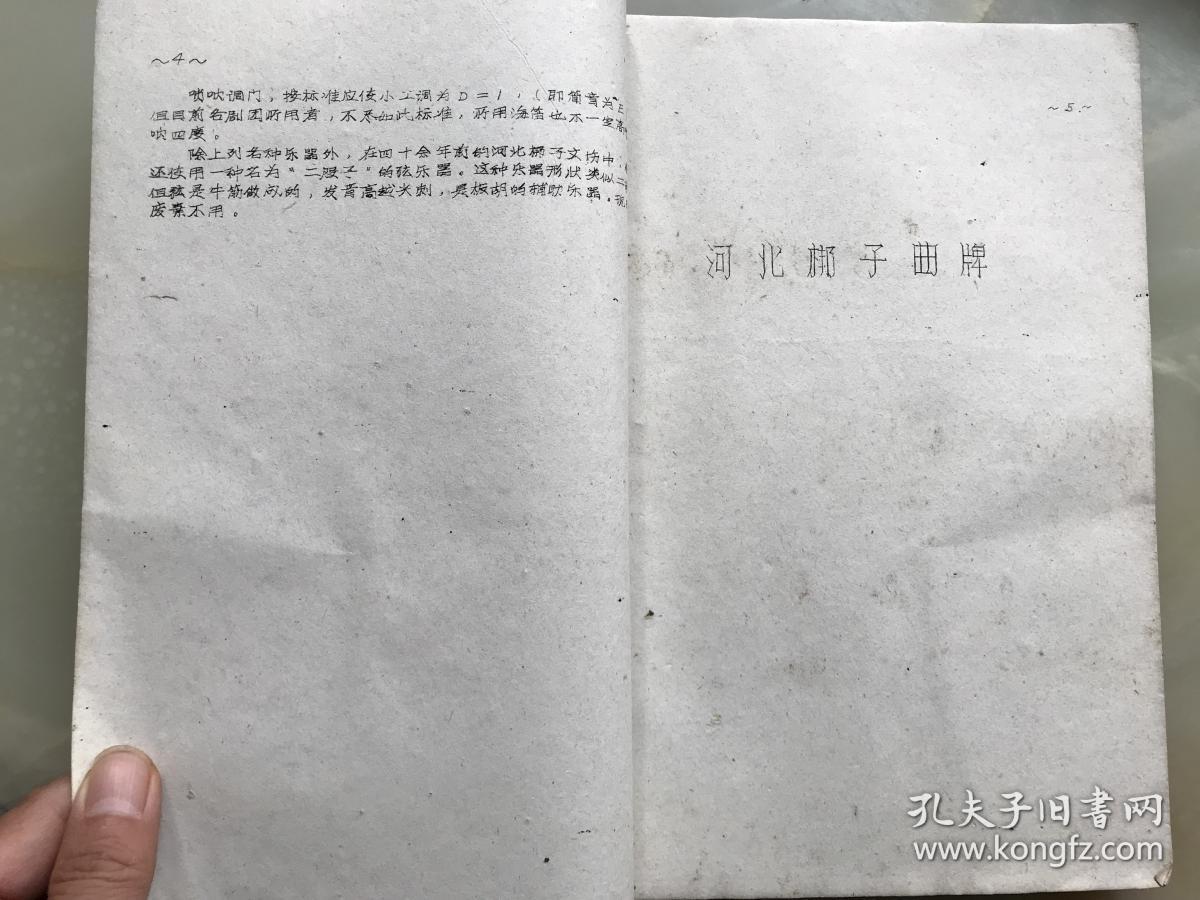 ~4~
唢呐调门，按标准应使小工调为D=1，（即筒音为E
但目前各剧团所用者，不尽如此标准，所用海笛也不一定高
吹四度。
除上列各种乐器外，在四十余年前的河北梆子文场中，
还使用一种名为“二股子”的弦乐器。这种乐器形状类似二
但弦是牛筋做成的，发音高越尖刺，是板胡的辅助乐器。现
废弃不用。
~5~
河北梆子曲牌
孔夫子旧书网
www.kongfz.com